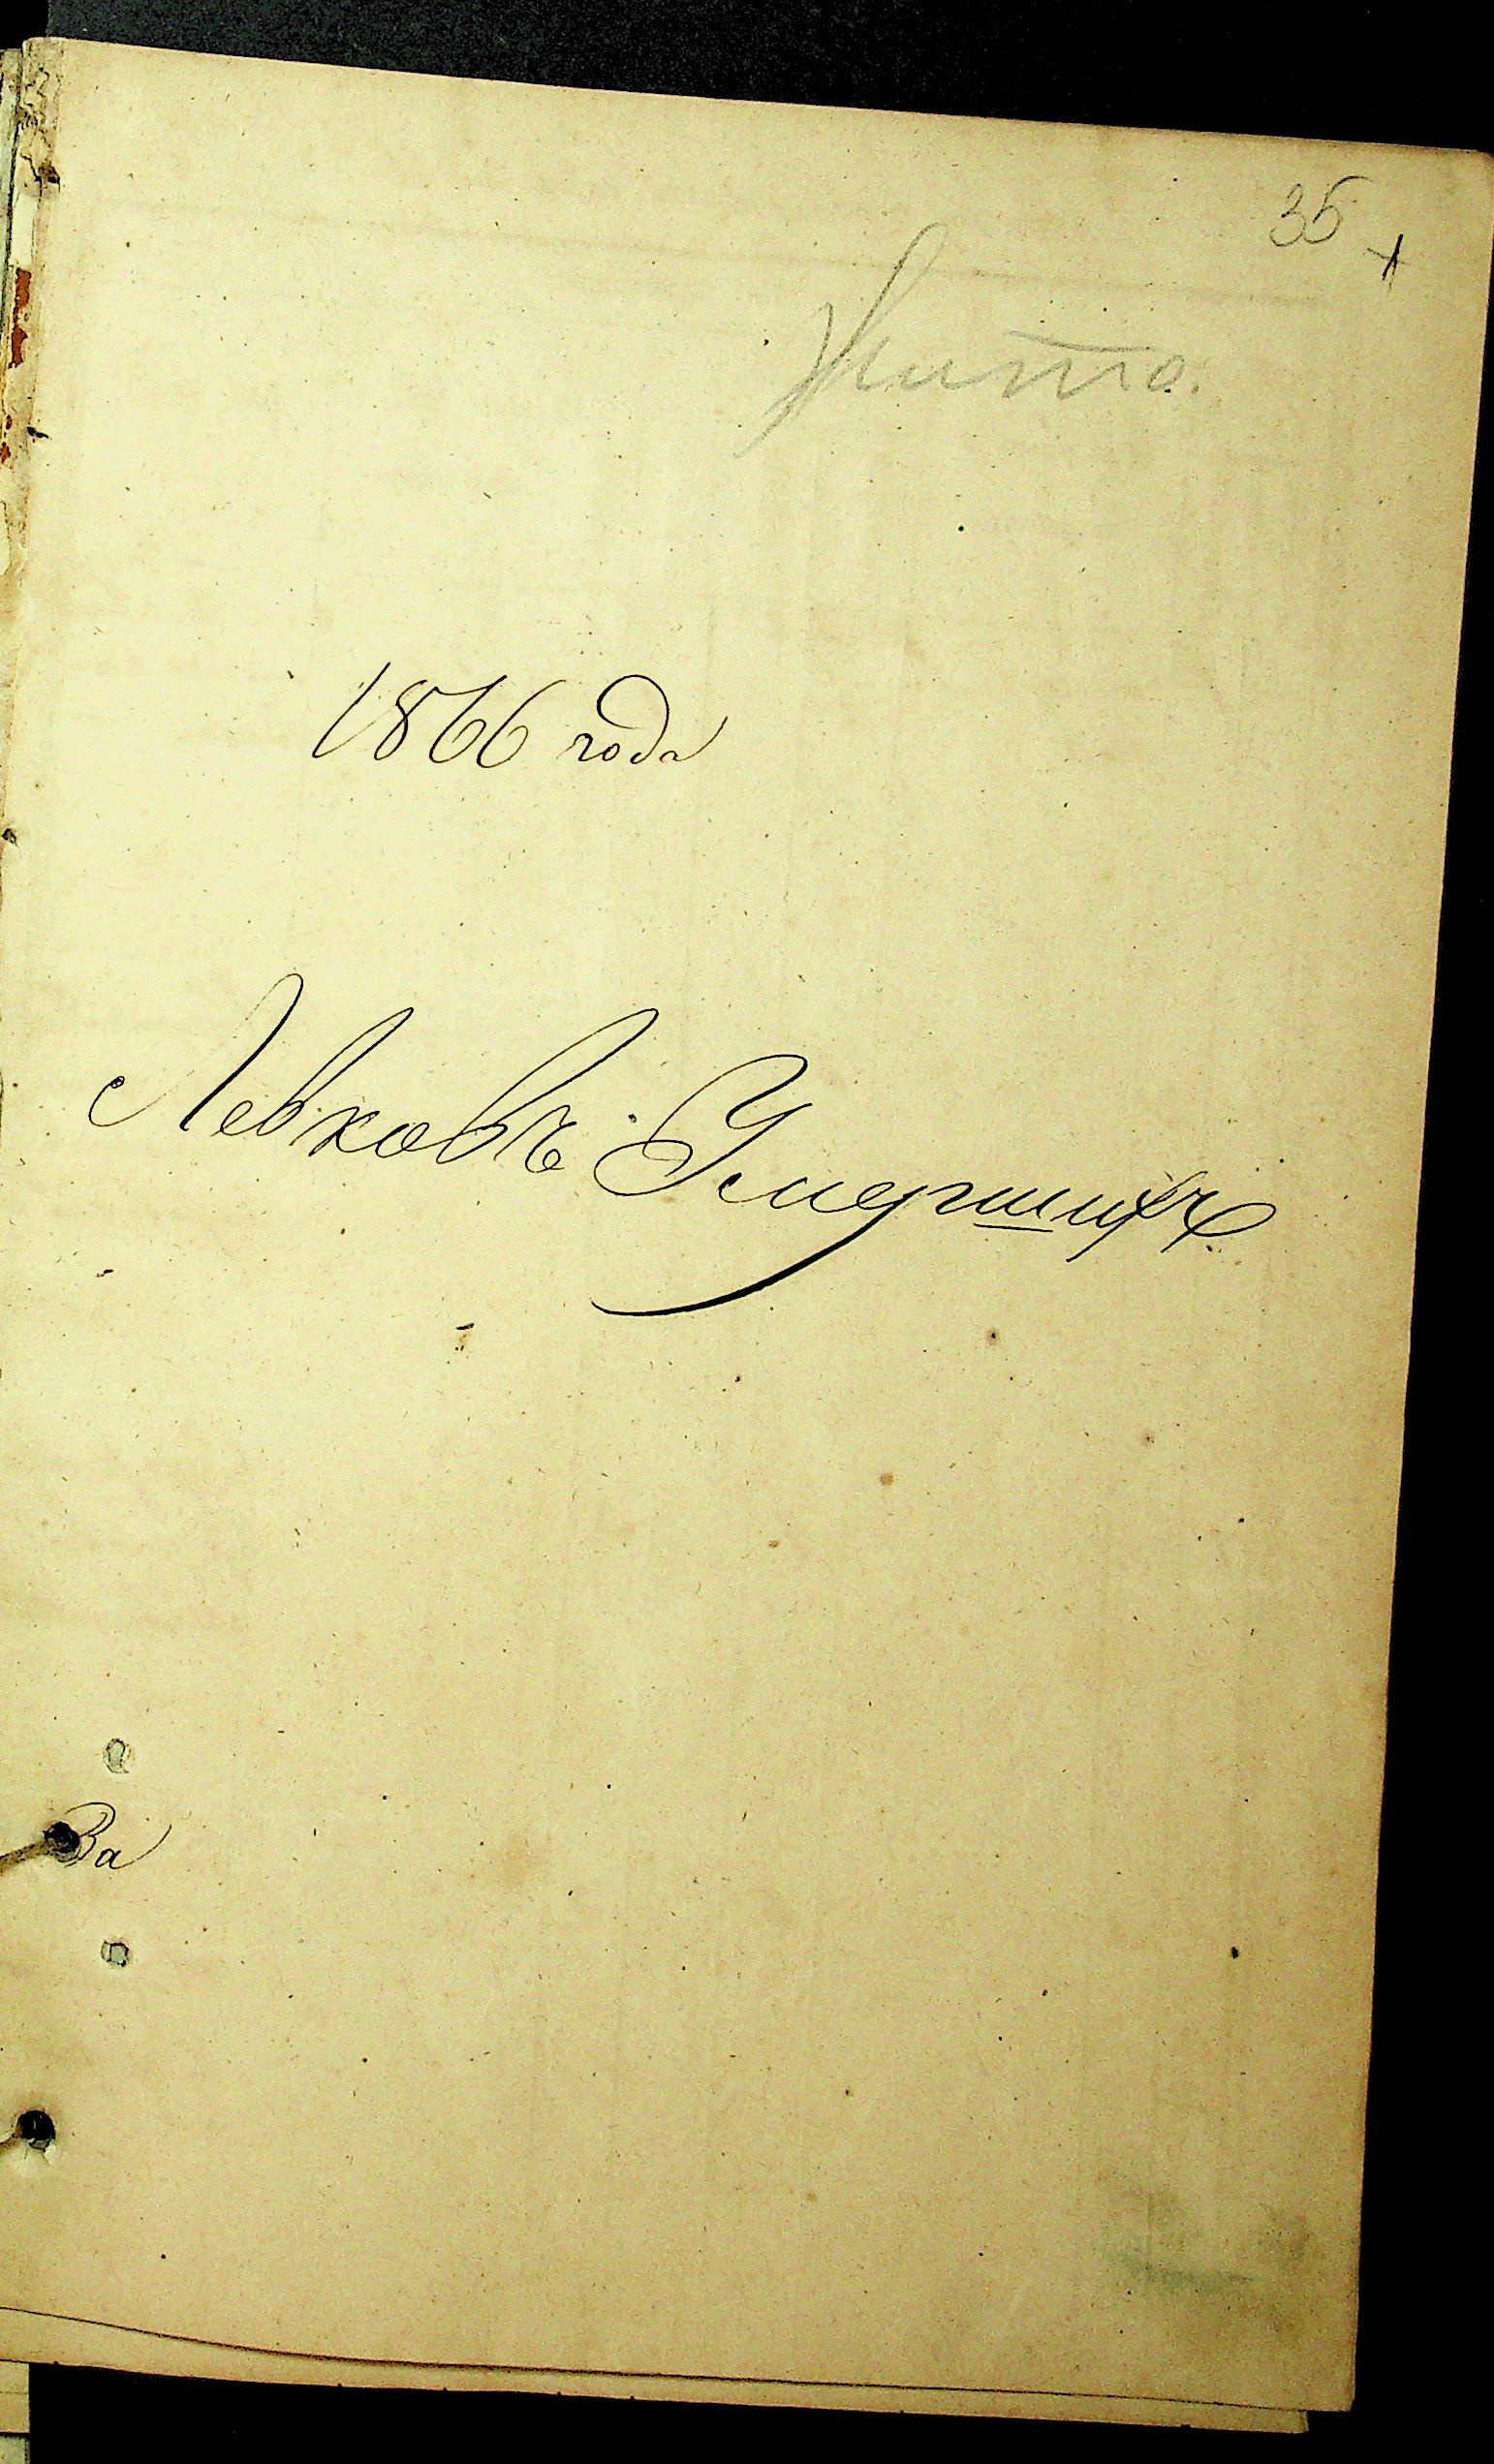 35
Жита.
1866 года
Левковъ Умершихъ
За